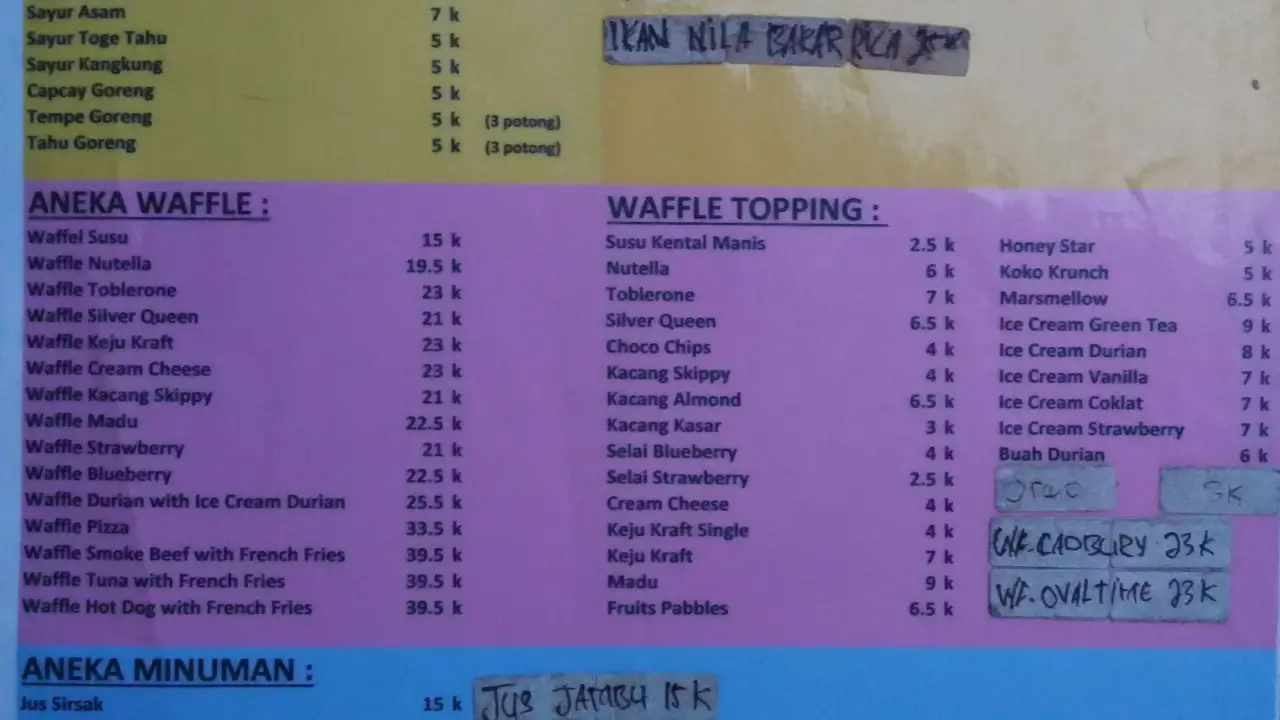 Sayur Asam 7 k
Sayur Toge Tahu 5 k
Sayur Kangkung 5 k
Capcay Goreng 5 k
Tempe Goreng 5 k (3 potong)
Tahu Goreng 5 k (3 potong)
IKAN NILA BAKAR RICA 25K
ANEKA WAFFLE :
Waffel Susu 15 k
Waffle Nutella 19.5 k
Waffle Toblerone 23 k
Waffle Silver Queen 21 k
Waffle Keju Kraft 23 k
Waffle Cream Cheese 23 k
Waffle Kacang Skippy 21 k
Waffle Madu 22.5 k
Waffle Strawberry 21 k
Waffle Blueberry 22.5 k
Waffle Durian with Ice Cream Durian 25.5 k
Waffle Pizza 33.5 k
Waffle Smoke Beef with French Fries 39.5 k
Waffle Tuna with French Fries 39.5 k
Waffle Hot Dog with French Fries 39.5 k
WAFFLE TOPPING :
Susu Kental Manis 2.5 k
Nutella 6 k
Toblerone 7 k
Silver Queen 6.5 k
Choco Chips 4 k
Kacang Skippy 4 k
Kacang Almond 6.5 k
Kacang Kasar 3 k
Selai Blueberry 4 k
Selai Strawberry 2.5 k
Cream Cheese 4 k
Keju Kraft Single 4 k
Keju Kraft 7 k
Madu 9 k
Fruits Pabbles 6.5 k
Honey Star 5 k
Koko Krunch 5 k
Marsmellow 6.5 k
Ice Cream Green Tea 9 k
Ice Cream Durian 8 k
Ice Cream Vanilla 7 k
Ice Cream Coklat 7 k
Ice Cream Strawberry 7 k
Buah Durian 6 k
WF. CADBURY 23K
WF. OVALTIME 23K
ANEKA MINUMAN :
Jus Sirsak 15 k
JUS JAMBU 15 K